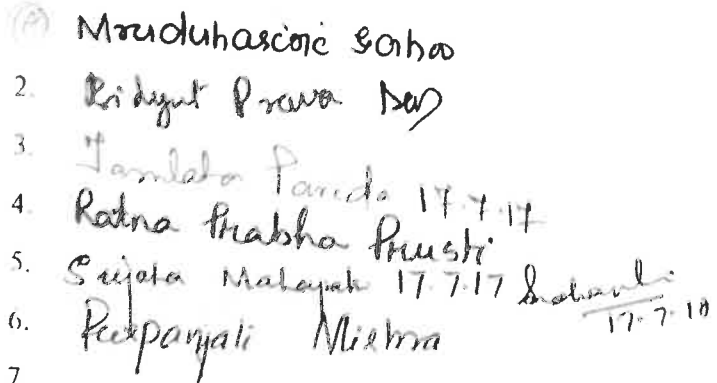 Mruduhasini Sahoo
2. Bidyut Prava Das
3. Parida 17.7.17
4. Ratna Prabha Prusti
5. Sujata 17.7.17
17.7.17
6. Puspanjali Mishra
7